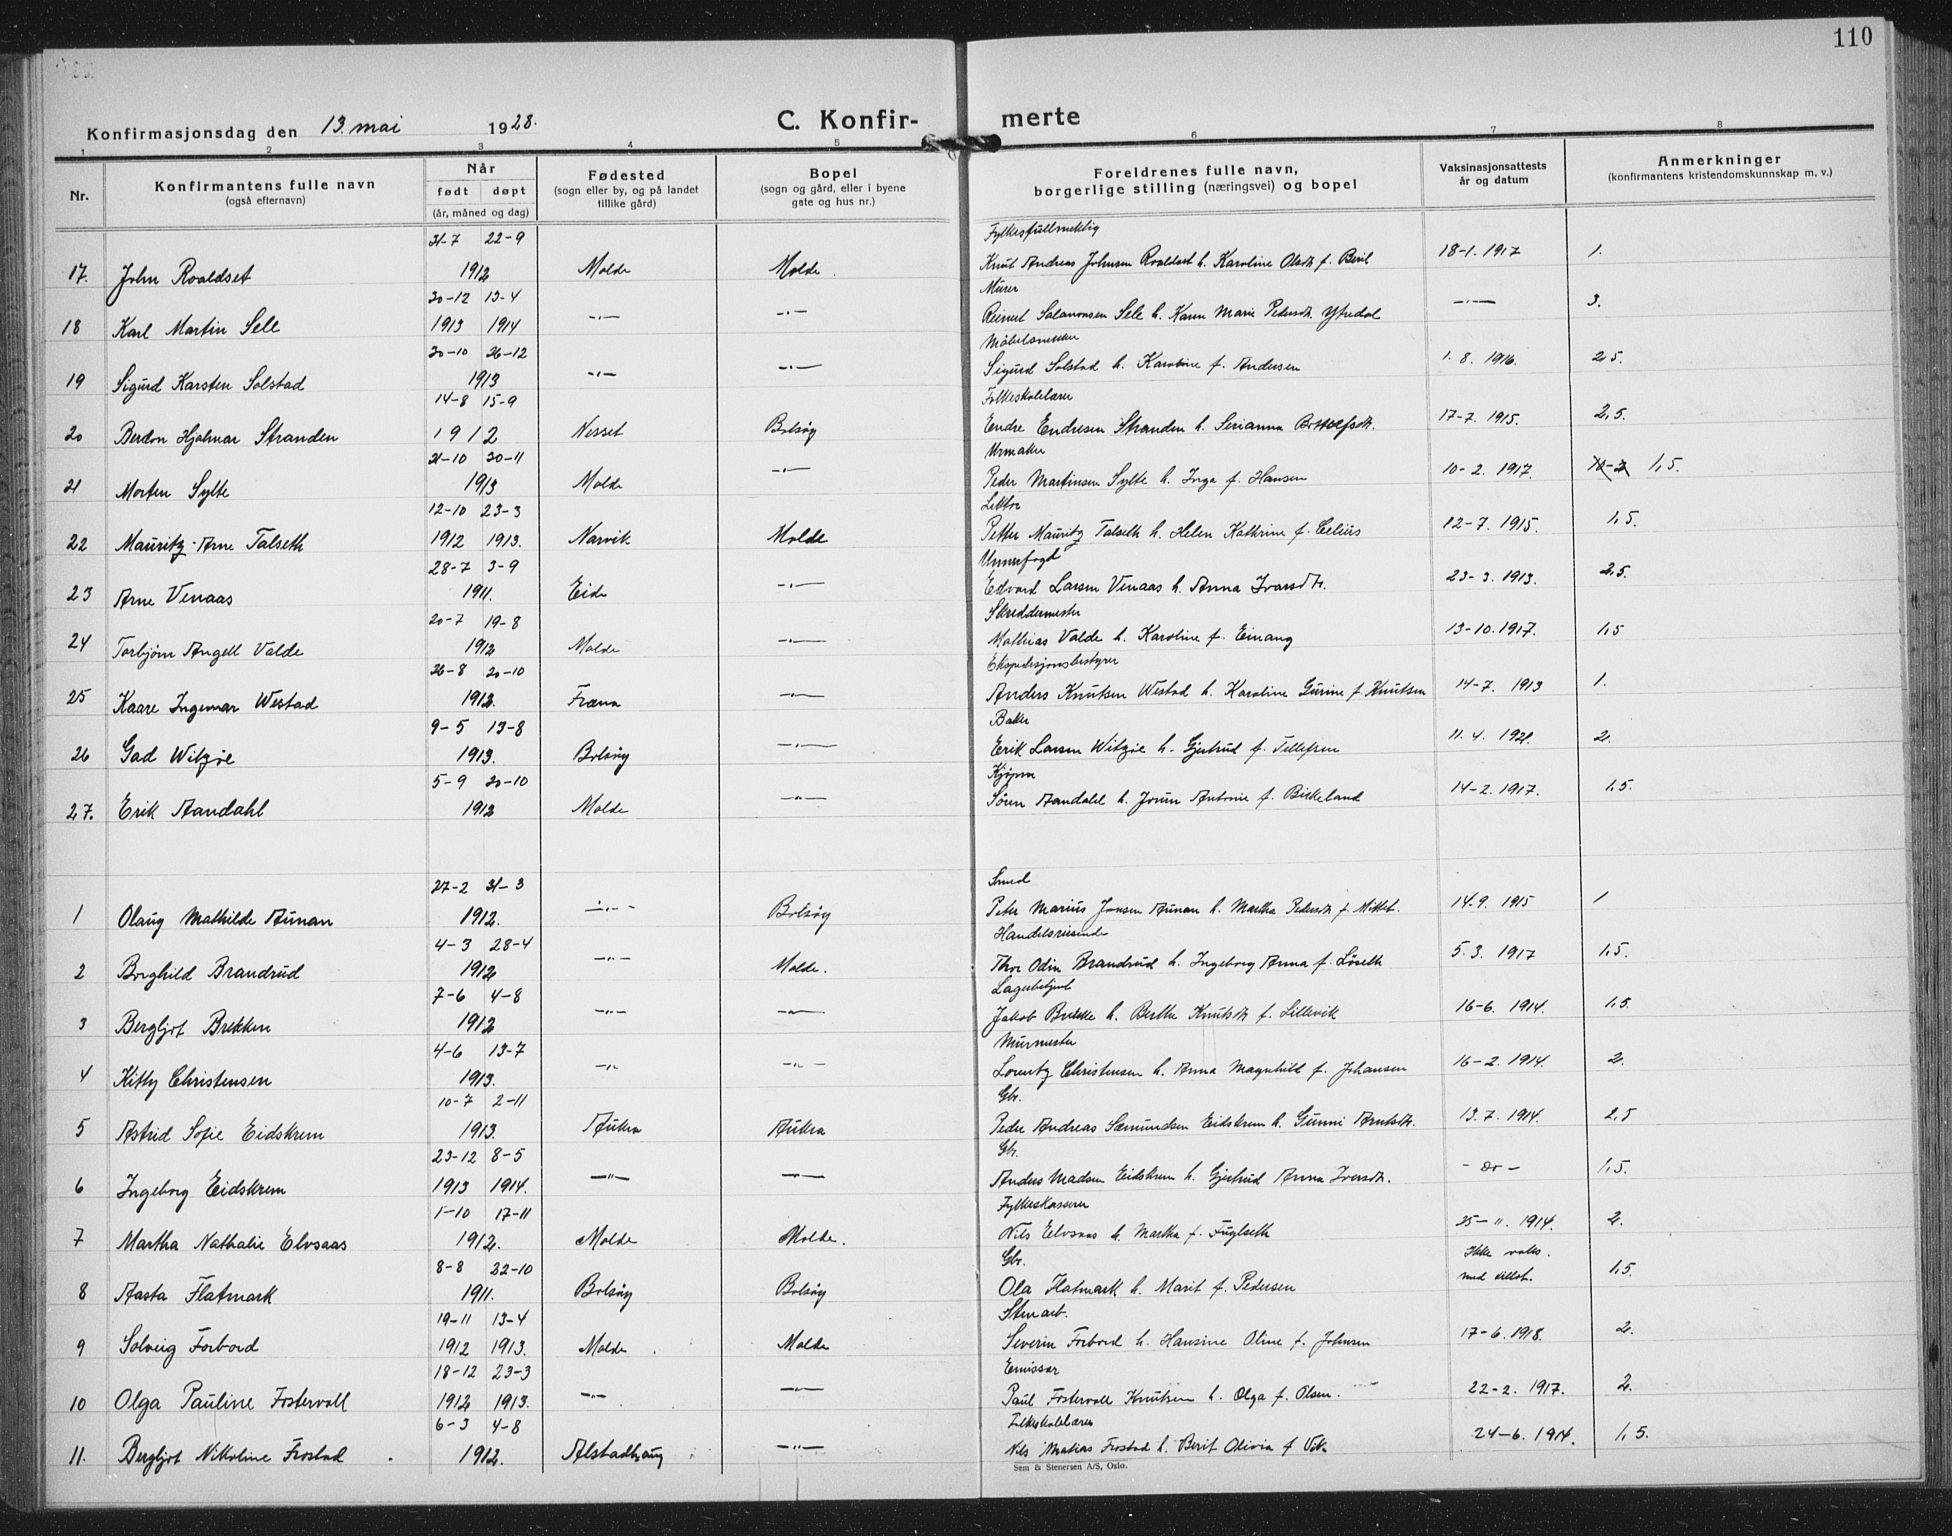 110
Konfirmasjonsdag den 13. mai 1928.
C. Konfir- merte
1 2 3 4 5 6 7 8
Nr.
Konfirmantens fulle navn
(også efternavn)
Når
født døpt
(år, måned og dag)
Fødested
(sogn eller by, og på landet
tillike gård)
Bopel
(sogn og gård, eller i byene
gate og hus nr.)
Foreldrenes fulle navn,
borgerlige stilling (næringsvei) og bopel
Vaksinasjonsattests
år og datum
Anmerkninger
(konfirmantens kristendomskunnskap m. v.)
31-7 22-9 Fylkesfullmektig
17. John Roaldset 1912 Molde Molde. Knut Andreas Johnsen Roaldset h. Karoline Olsdt. f. Beril 18-1. 1917 1.
30-12 13-4 Murer
18 Karl Martin Sele 1913 1914 -"- -"- Reinert Salamonsen Sele h. Karen Marie Pedersdt. Ytredal -"- 3.
30-10 26-12 Møbelsnekker
19 Sigurd Karsten Solstad 1913 -"- -"- Sigurd Solstad h. Karoline f. Andersen 1. 8. 1916. 2,5.
14-8 15-9 Folkeskolelærer
20 Berdon Hjalmar Stranden 1912 Nesset Bolsøy Endre Endresen Stranden h. Serianna Bottolfsdt. 17-7. 1915. 2,5.
21-10 30-11 Urmaker
21 Morten Sylte 1913 Molde -"- Peder Martinsen Sylte h. Inga f. Hansen 10-2. 1917. 1,5.
12-10 23-3 Lektor
22 Mauritz Arne Talseth 1912 1913. Narvik Molde Petter Mauritz Talseth h. Helen Kathrine f. Celius 12-7. 1915. 1,5.
28-7 3-9 Underfogd
23 Arne Venaas 1911. Eide -"- Edvard Larsen Venaas h. Anna Ivarsdtr. 23-3. 1913. 2,5.
20-7 19-8 Skreddermester
24 Torbjørn Angell Valde 1912 Molde -"- Mathias Valde h. Karoline f. Einang 13-10. 1917. 1,5
26-8 20-10 Ekspedisjonsbestyrer
25 Kaare Ingemar Westad 1912. Fræna -"- Anders Knutsen Westad h. Karoline Gurine f. Knutsen 14-7. 1913 1.
9-5 13-8 Baker
26 Gad Witzøe 1913. Bolsøy -"- Erik Larsen Witzøe h. Gjertrud f. Tellefsen 11. 4. 1921. 2.
5-9 20-10 Kjøpm
27. Erik Aandahl 1912 Molde -"- Søren Aandahl h. Jorun Antonie f. Birkeland 14-2. 1917. 1,5.
27-2 31-3 Smed
1 Olaug Mathilde Aunan 1912. -"- Bolsøy Peter Marius Jansen Aunan h. Martha Pedersdt. f. Mittet. 14-9. 1915 1
4-3 28-4 Handelsreisende
2 Borghild Brandrud 1912 -"- Molde. Thor Odin Brandrud h. Ingeborg Anna f. Løseth 5. 3. 1917 1,5.
7-6 4-8 Lagerbetjent
3 Bergljot Brekken 1912 -"- -"- Jakob Brekke h. Berthe Knutsdt. f. Lillevik 16-6. 1914. 1,5.
4-6 13-7 Murmester
4 Kitty Christensen 1913. -"- -"- Lorentz Christensen h. Anna Magnhild f. Johansen 16-2. 1914. 2.
10-7 2-11 Gbr.
5 Astrid Sofie Eidskrem 1913. Aukra Aukra Peder Andreas Sæmundsen Eidskrem h. Gunni Arntsdt. 13. 7. 1914. 2,5
23-12 8-5 Gbr.
6 Ingeborg Eidskrem 1913 1914. -"- -"- Anders Madsen Eidskrem h. Gjertrud Anna Iversdt. - do - 1,5.
1-10 17-11 Fylkeskasserer
7 Martha Nathalie Elvsaas 1912. Molde Molde. Nils Elvsaas h. Martha f. Fuglseth 25-11. 1914. 2.
8-8 22-10 Gbr. Ikke vaks.
8 Aasta Flatmark 1911. Bolsøy Bolsøy Ola Flatmark h. Marit f. Pedersen med tillat. 1,5.
19-11 13-4 Stenarb.
9 Solveig Forbord 1912 1913. Molde Molde Severin Forbord h. Hansine Oline f. Johnsen 17-6. 1918. 2.
18-12 23-3 Emissær
10 Olga Pauline Fostervoll 1912 1913. -"- -"- Paul Fostervoll Knutsen h. Olga f. Olsen. 22-2. 1917. 2.
6-3 4-8 Folkeskolelærer
11. Bergljot Nikoline Frostad 1912. Alstadhaug -"- Nils Matias Frostad h. Berit Olivia f Vik 24-6. 1914. 1,5.
Sem & Stenersen A/S, Oslo.